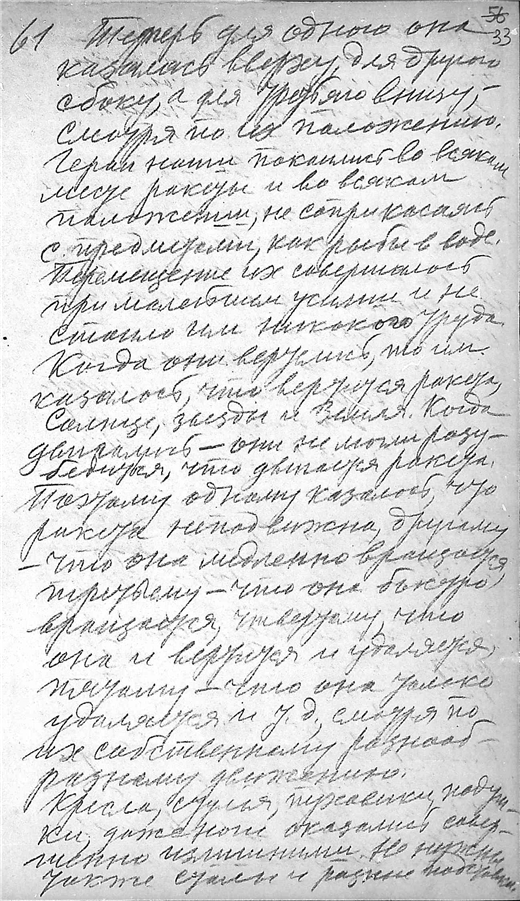 56
61 Теперь для одного она 33
казалась вверху, для другого
сбоку, а для третьего внизу, –
смотря по их положению.
Герои наши покоились во всяком
месте ракеты и во всяком
положении, не соприкасаясь
с предметами, как рыбы в воде.
Перемещение их совершалось
при малейшем усилии и не
стоило им никакого труда.
Когда они вертелись, то им
казалось, что вертится ракета,
Солнце, звезды и Земля. Когда
двигались – они не могли разу-
бедиться, что двигается ракета.
Поэтому одному казалось, что
ракета неподвижна, другому
– что она медленно вращается,
третьему – что она быстро
вращается, четвертому, что
она и вертится и удаляется,
пятому – что она только
удаляется и т.д., смотря по
их собственному разнооб-
разному движению.
Кресла, стулья, пуховики, подуш-
ки, даже ноги оказались совер-
шенно излишними. Не нужны
также столы и разные подставки.